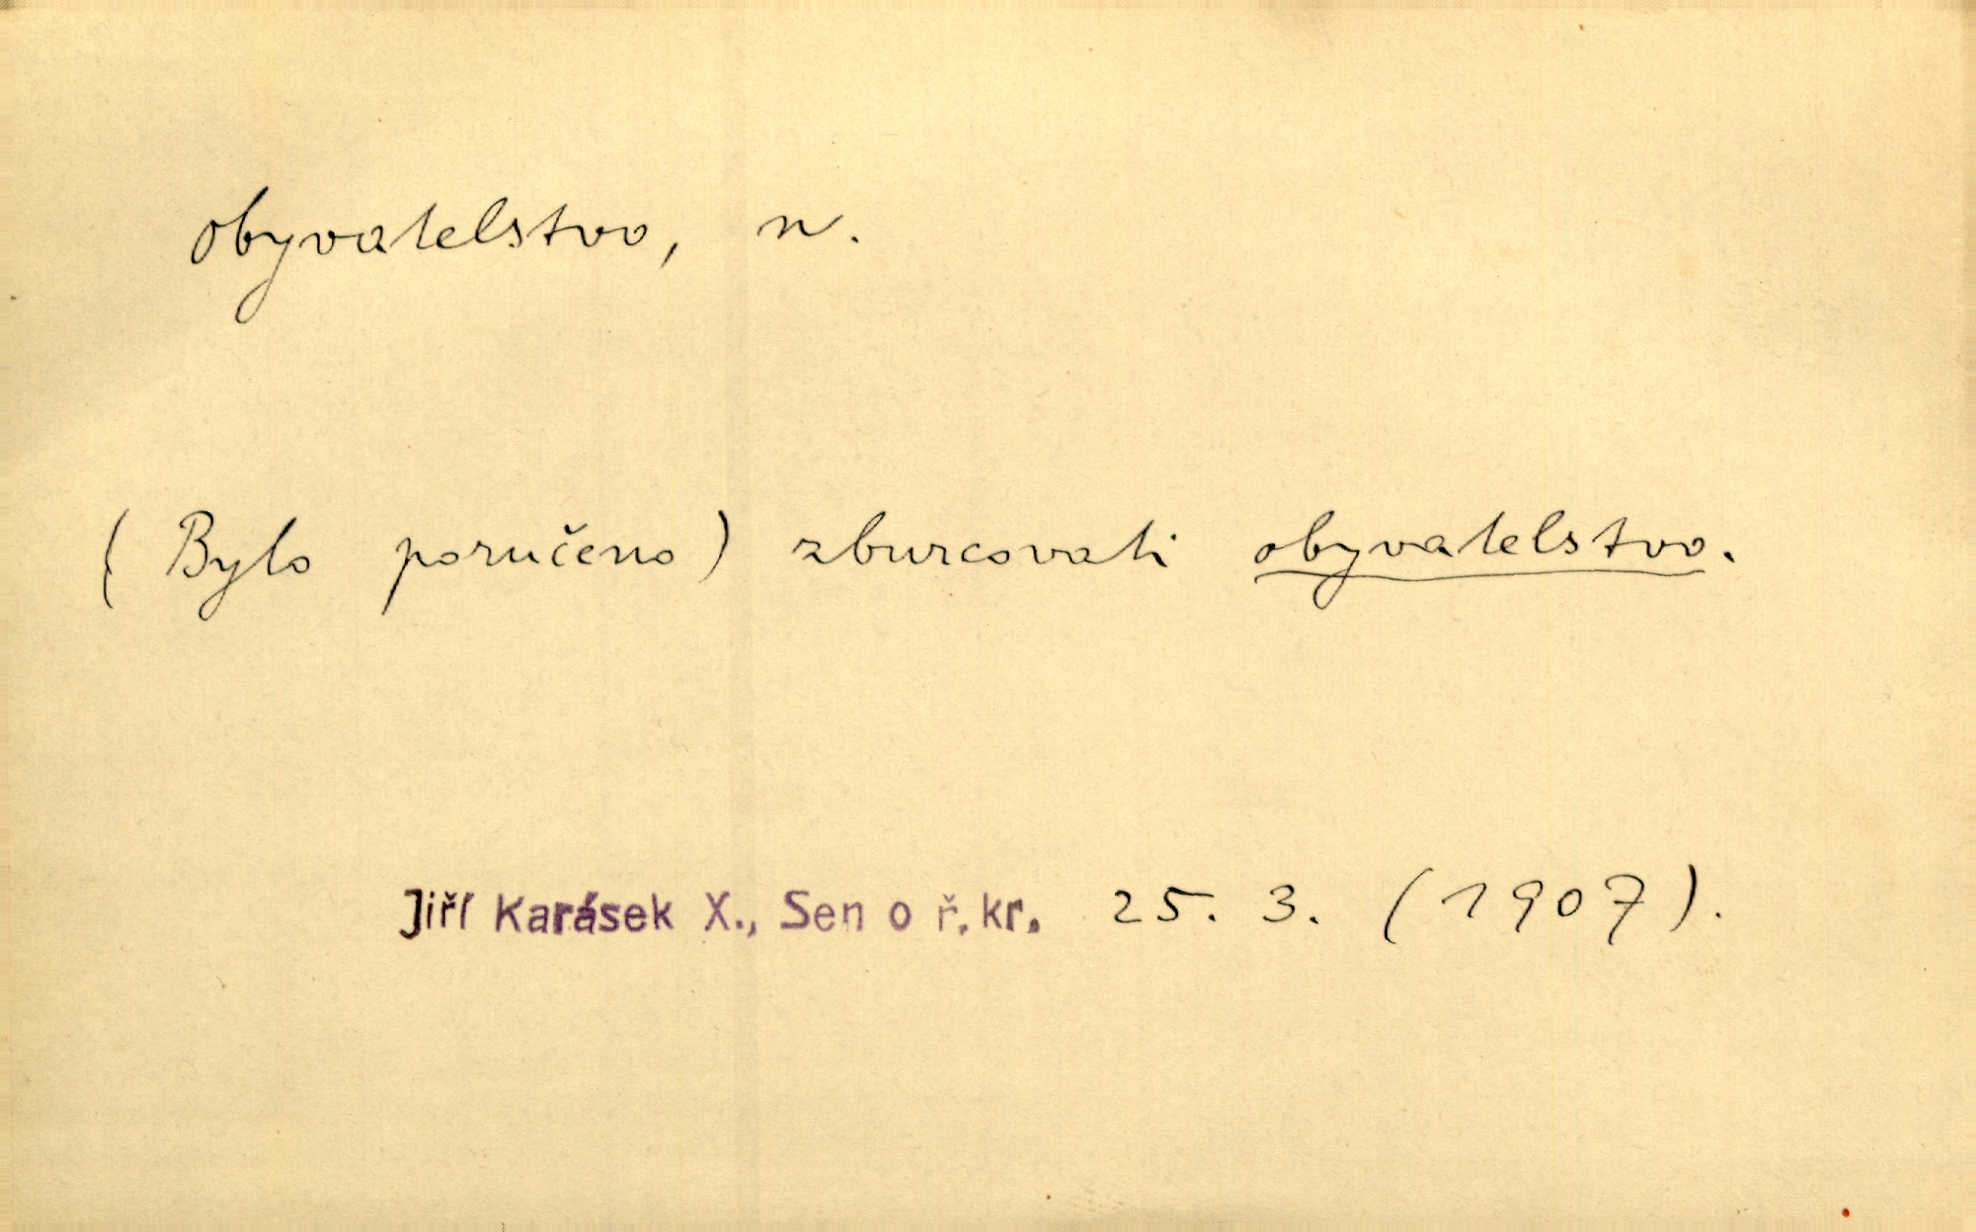 obyvatelstvo, n.
(Bylo poručeno) zburcovati obyvatelstvo.
Jiří Karásek X., Sen o ř. kr. 25. 3. (1907).